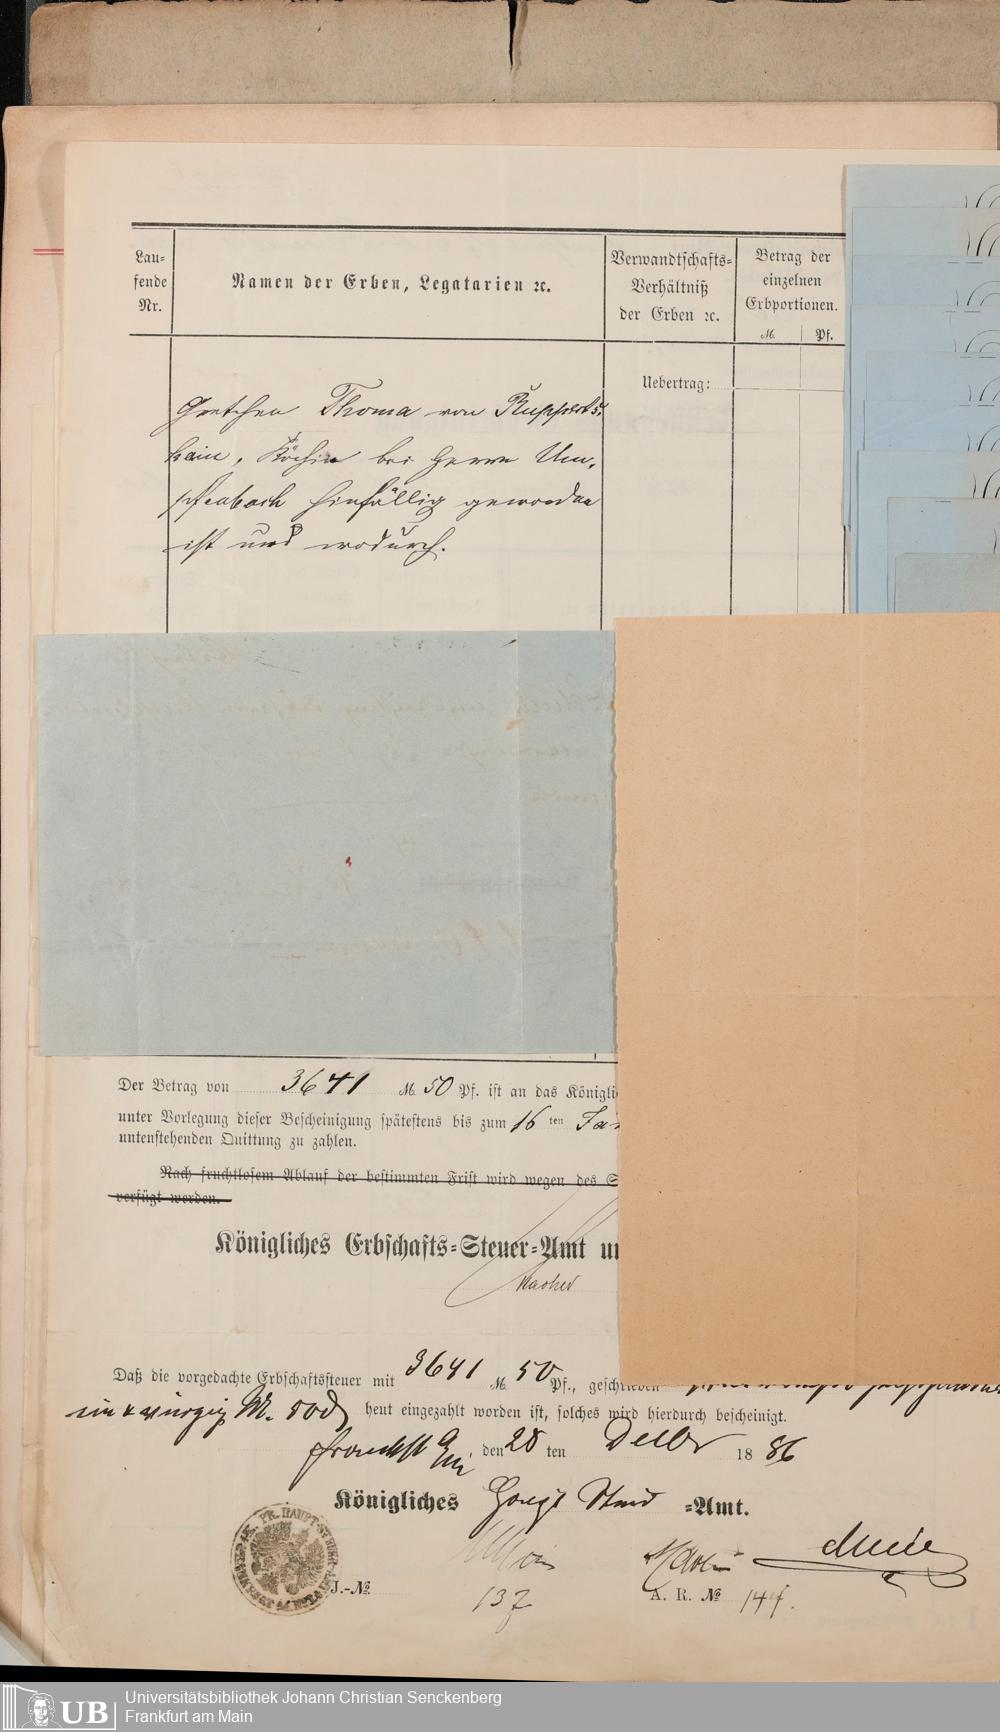 Lau-
fende
Nr.
Namen der Erben, Legatarien ꝛc.
Verwandtschafts-
Verhältniß
der Erben ꝛc.
Betrag der
einzelnen
Erbportionen.
M. Pf.
Uebertrag:
Gretchen Thoma von Rupperts-
hain, Köchin bei Herrn Um-
pfenbach hinfällig geworden
ist und wodurch.
Der Betrag von 3641 M. 50 Pf. ist an das Königli
unter Vorlegung dieser Bescheinigung spätestens bis zum 16 ten Ja
untenstehenden Quittung zu zahlen.
Nach fruchtlosem Ablauf der bestimmten Frist wird wegen des S
verfügt werden.
Königliches Erbschafts-Steuer-Amt un
Daß die vorgedachte Erbschaftssteuer mit 3641 M. 50 Pf., geschrieben
ein & vierzig M. 50 heut eingezahlt worden ist, solches wird hierdurch bescheinigt.
den 28 ten Decbr 18 86
Königliches Haupt Steuer -Amt.
J.-№ 137
A. R. № 144.
UB
Universitätsbibliothek Johann Christian Senckenberg
Frankfurt am Main